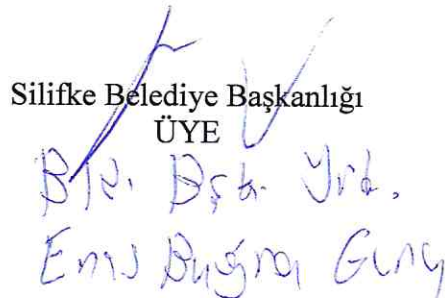 Silifke Belediye Başkanlığı
ÜYE
Bld. Bşk. Yrd.
Enis Buğra Genç